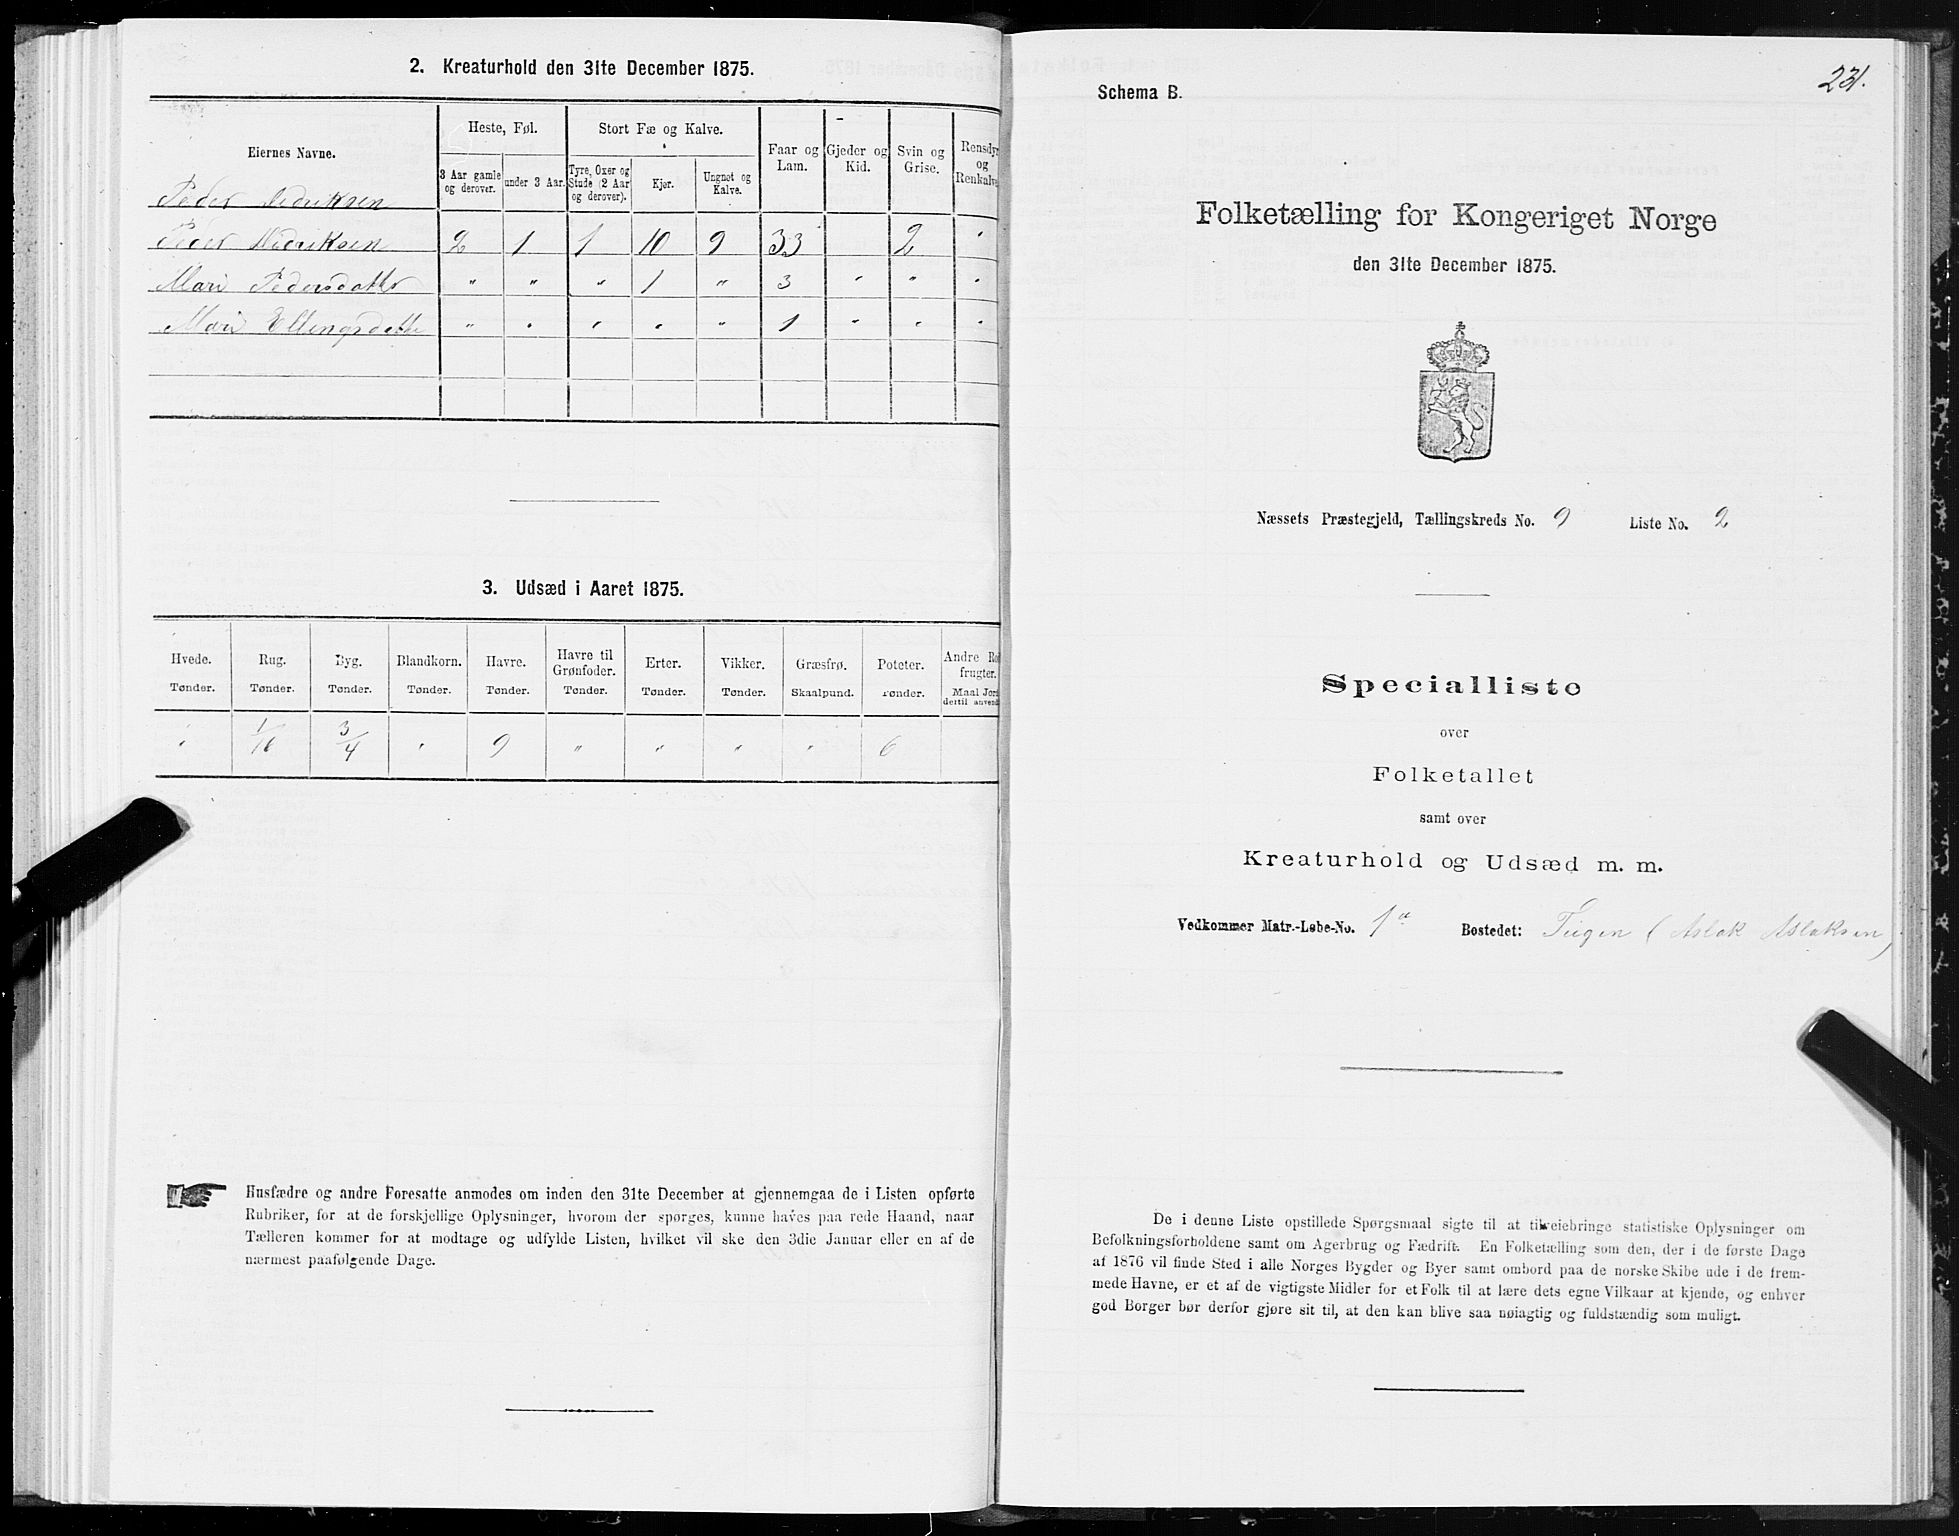 2. Kreaturhold den 31te December 1875.
Eiernes Navne.
Heste, Føl.
Stort Fæ og Kalve.
Faar og Lam.
Gjeder og Kid.
Svin og Grise.
Rensdyr og Renkalve
3 Aar gamle og derover.
under 3 Aar.
Tyre, Oxer og Stude (2 Aar og derover).
Kjør.
Ungnøt og Kalve.
Peder
Peder 2 1 1 10 9 33 2 "
Mari Pedersdatter " " " 1 " 3 " " "
Mari Ellingsdatte " " " " " 1 " " "
3. Udsæd i Aaret 1875.
Hvede. Rug. Byg. Blandkorn. Havre. Havre til Grønfoder. Erter. Vikker. Græsfrø. Poteter. Andre Ro frugter.
Tønder. Tønder. Tønder. Tønder. Tønder. Tønder. Tønder. Tønder. Skaalpund. Tønder. Maal Jord dertil anvend
" 1/16 3/4 " 9 " " " " 6
Husfædre og andre Foresatte anmodes om inden den 31te December at gjennemgaa de i Listen opførte
Rubriker, for at de forskjellige Oplysninger, hvorom der spørges, kunne haves paa rede Haand, naar
Tælleren kommer for at modtage og udfylde Listen, hvilket vil ske den 3die Januar eller en af de
nærmest paafølgende Dage.
231.
Schema B.
Folketælling for Kongeriget Norge
den 31te December 1875.
Næssets Præstegjeld, Tællingskreds No. 9 Liste No. 2
Specialliste
over
Folketallet
samt over
Kreaturhold og Udsæd m. m.
Vedkommer Matr.-Løbe-No. 1a Bostedet: Teigen (Aslak Aslaksen)
De i denne Liste opstillede Spørgsmaal sigte til at tilveiebringe statistiske Oplysninger om
Befolkningsforholdene samt om Agerbrug og Fædrift. En Folketælling som den, der i de første Dage
af 1876 vil finde Sted i alle Norges Bygder og Byer samt ombord paa de norske Skibe ude i de frem-
mede Havne, er et af de vigtigste Midler for et Folk til at lære dets egne Vilkaar at kjende, og enhver
god Borger bør derfor gjøre sit til, at den kan blive saa nøiagtig og fuldstændig som muligt.